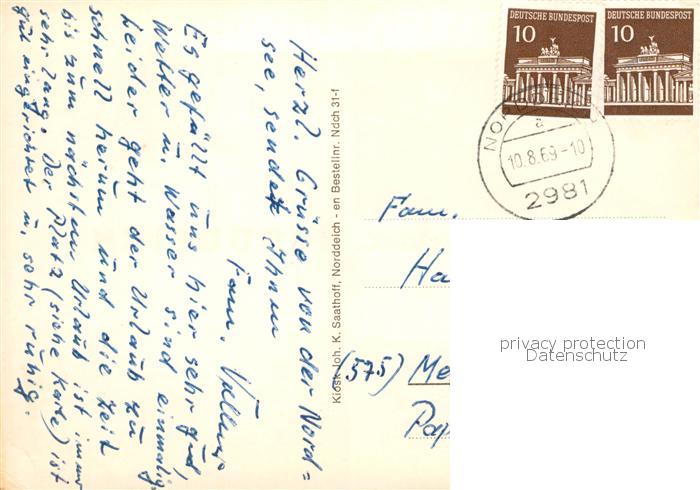 Herzl. Grüsse von der Nord=
see, sendet Ihnen
Fam.
Es gefällt uns hier sehr gut,
Wetter u. Wasser sind einmalig.
Leider geht der Urlaub zu
schnell herum und die Zeit
bis zum nächsten Urlaub ist immer
sehr lang. Der Platz (siehe Karte) ist
gut eingerichtet u. sehr ruhig.
Kiosk Joh. K. Saathoff, Norddeich - en Bestellnr. Ndch 31-f
DEUTSCHE BUNDESPOST
10
DEUTSCHE BUNDESPOST
10
a
10.8.69-10
2981
Fam.
Ha
(575) Me
Pap
privacy protection
Datenschutz